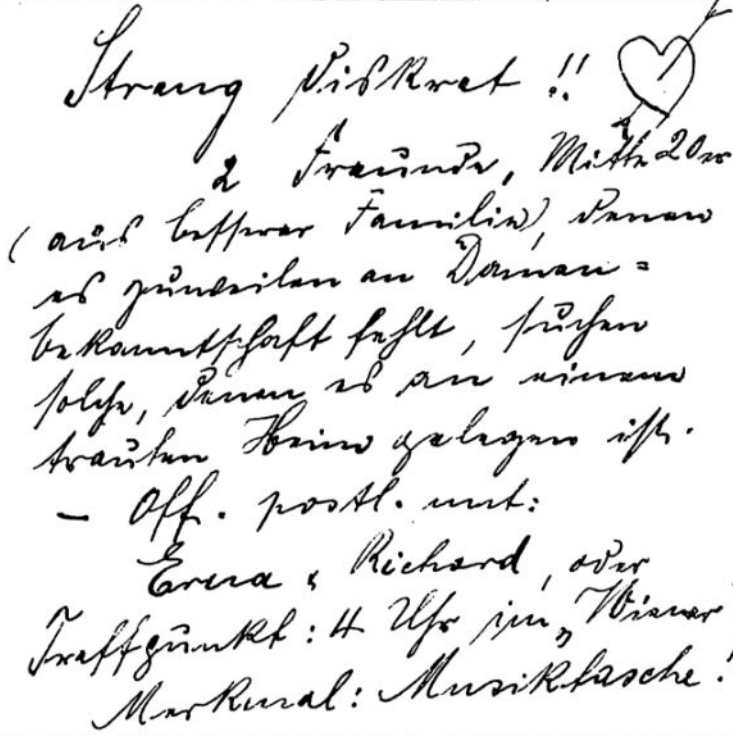 Streng diskret!!
2 Freunde, Mitte 20er
(aus besserer Familie), denen
es zuweilen an Damen=
bekanntschaft fehlt, suchen
solche, denen es an einem
trauten Heim gelegen ist.
- Off. postl. unt:
Erna & Richard, oder
Treffpunkt: 4 Uhr im „Wiener
Merkmal: Musiktasche!